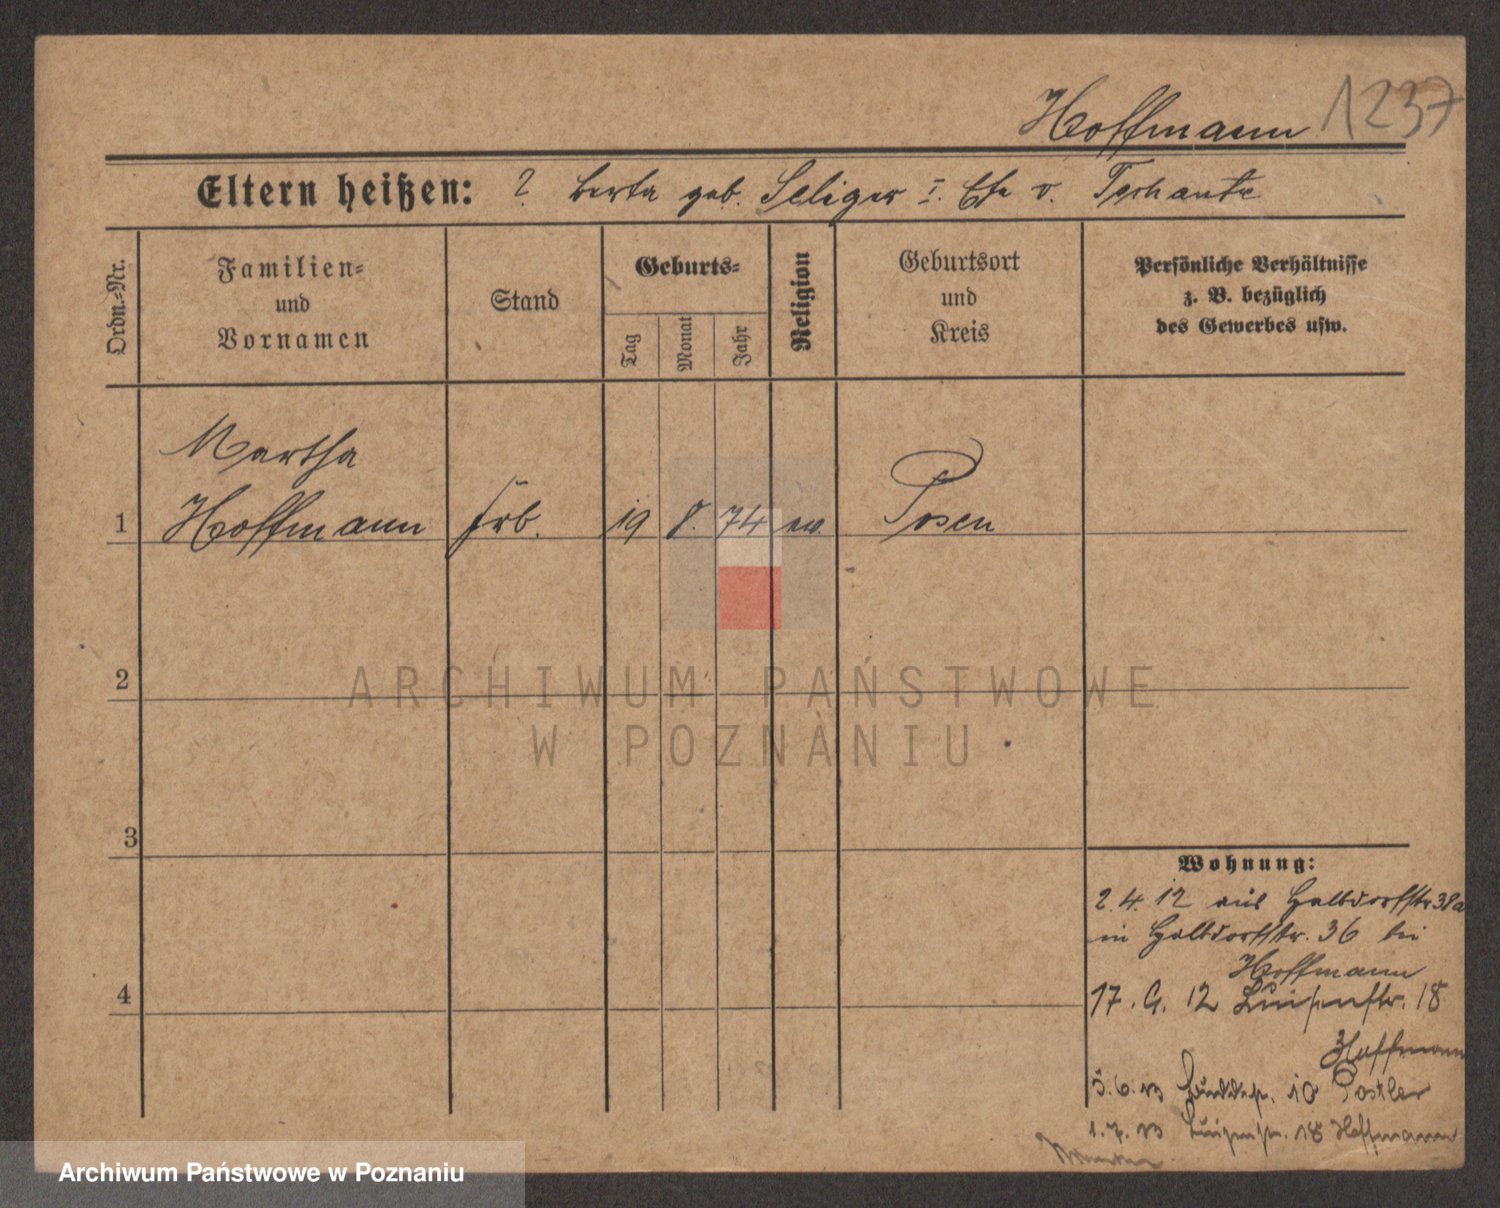 Hoffmann 1237
Eltern heißen: ? Berta geb. Seliger I. Ehe v.
Ordn.-Nr.
Familien-
und
Vornamen
Stand
Geburts-
Tag
Monat
Jahr
Religion
Geburtsort
und
Kreis
Persönliche Verhältnisse
z. B. bezüglich
des Gewerbes usw.
Martha
1 Hoffmann 19 8. 74 ev. Posen
2
ARCHIWUM PAŃSTWOWE
W POZNANIU
3
Wohnung:
2. 4. 12 aus Halbdorfstr 38a
in Halbdorfstr. 36 bei
Hoffmann
4
17. 9. 12 Luisenstr. 18
Hoffmann
5. 6. 13 10 Postler
1. 7. 13 Luisenstr. 18 Hoffmann
Archiwum Państwowe w Poznaniu